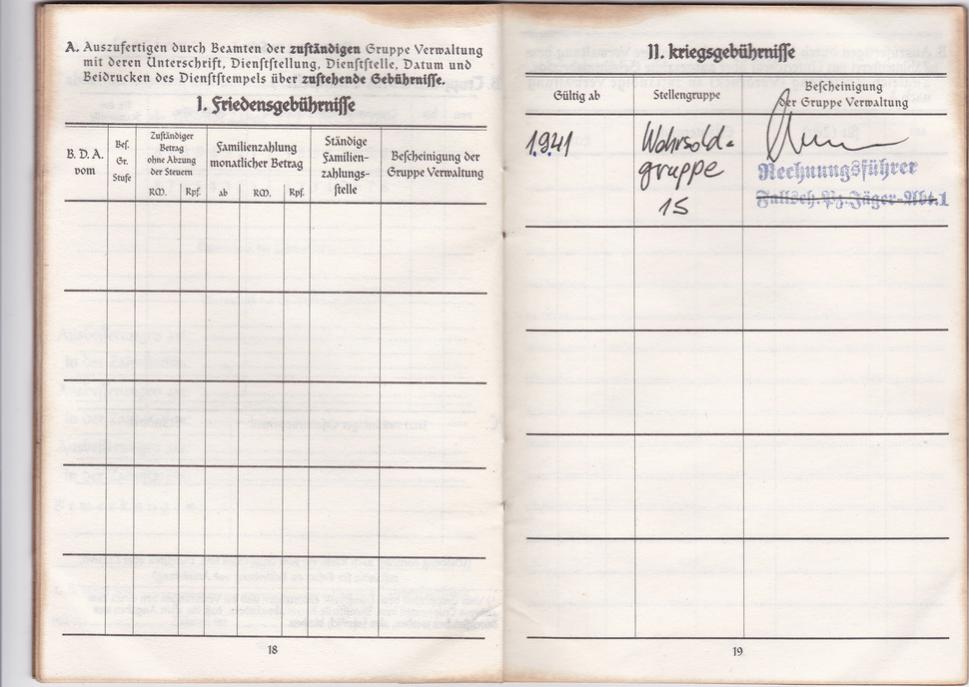 A. Auszufertigen durch Beamten der zuständigen Gruppe Verwaltung
mit deren Unterschrift, Dienststellung, Dienststelle, Datum und
Beidrucken des Dienststempels über zustehende Gebührnisse.
I. Friedensgebührnisse
B. D. A.
vom
Bes.
Gr.
Stufe
Zuständiger
Betrag
ohne Abzung
der Steuern
RM. Rpf.
Familienzahlung
monatlicher Betrag
ab RM. Rpf.
Ständige
Familien-
zahlungs-
stelle
Bescheinigung der
Gruppe Verwaltung
18
II. Kriegsgebührnisse
Gültig ab
Stellengruppe
Bescheinigung
der Gruppe Verwaltung
1.9.41
Wehrsold-
gruppe
15
Rechnungsführer
Fallsch. Pz. Jäger-Abt. 1
19